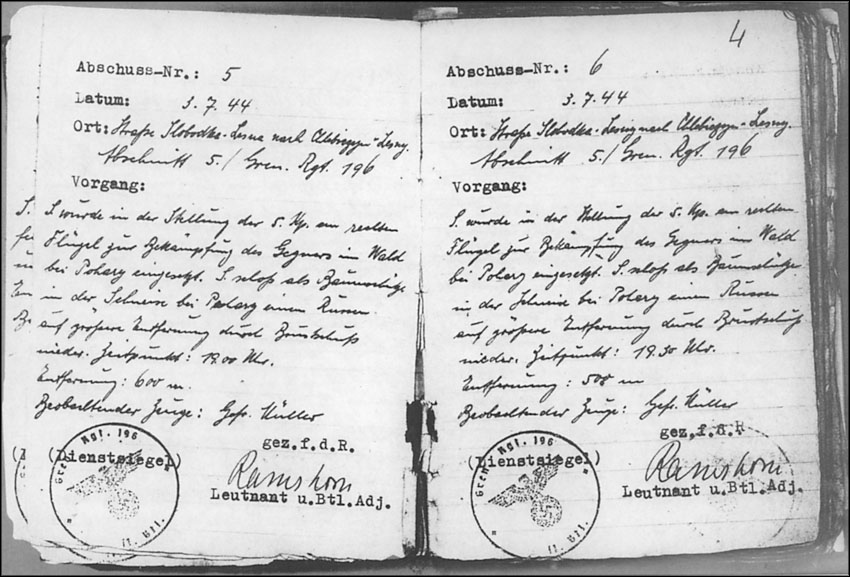 Abschuss-Nr.: 5
Datum: 3.7.44
Ort: Straße Slobodka-Lesna nach
Abschnitt 5./Gren. Rgt. 196
Vorgang:
S. wurde in der Stellung der 5. Kp. am rechten
Flügel zur Bekämpfung des Gegners im Wald
bei eingesetzt. S. schoß als Baumschütze
in der Schneise bei einen Russen
auf größere Entfernung durch Brustschuß
nieder. Zeitpunkt: 19.00 Uhr.
Entfernung: 600 m.
Beobachtender Zeuge: Gefr. Müller
gez.f.d.R.
(Dienstsiegel)
Gren. Rgt. 196
II. Btl.
Ramshorn
Leutnant u.Btl.Adj.
4
Abschuss-Nr.: 6
Datum: 3.7.44
Ort: Straße Slobodka- nach
Abschnitt 5./Gren. Rgt. 196
Vorgang:
S. wurde in der Stellung der 5. Kp. am rechten
Flügel zur Bekämpfung des Gegners im Wald
bei eingesetzt. S. schoß als Baumschütze
in der Schneise bei einen Russen
auf größere Entfernung durch Brustschuß
nieder. Zeitpunkt: 19.30 Uhr.
Entfernung: 500 m
Beobachtender Zeuge: Gefr. Müller
gez.f.d.R
(Dienstsiegel)
Gren. Rgt. 196
II. Btl.
Ramshorn
Leutnant u.Btl.Adj.